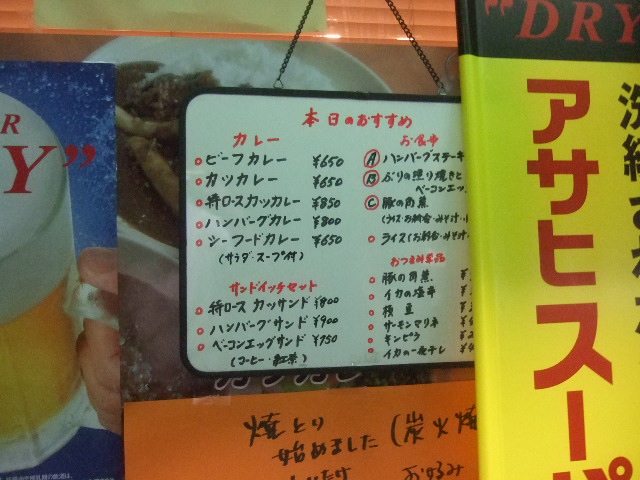 本日のおすすめ
カレー
ビーフカレー ¥650
カツカレー ¥650
特ロースカツカレー ¥850
ハンバーグカレー ¥800
シーフードカレー ¥650
(サラダ・スープ付)
サンドイッチセット
特ロース カツサンド ¥800
ハンバーグサンド ¥900
ベーコンエッグサンド ¥750
(コーヒー・紅茶)
お食事
A ハンバーグステーキ
B ぶりの照り焼きと
ベーコンエッ
C 豚の角煮
(ライス・お新香・みそ汁
ライス(お新香・みそ汁
おつまみ単品
豚の角煮
イカの塩辛
枝豆
サーモンマリネ
キンピラ
イカの一夜干し
焼とり
始めました (炭火焼
お好み
"DRY
アサヒスーパ
洗練され
R
Y"